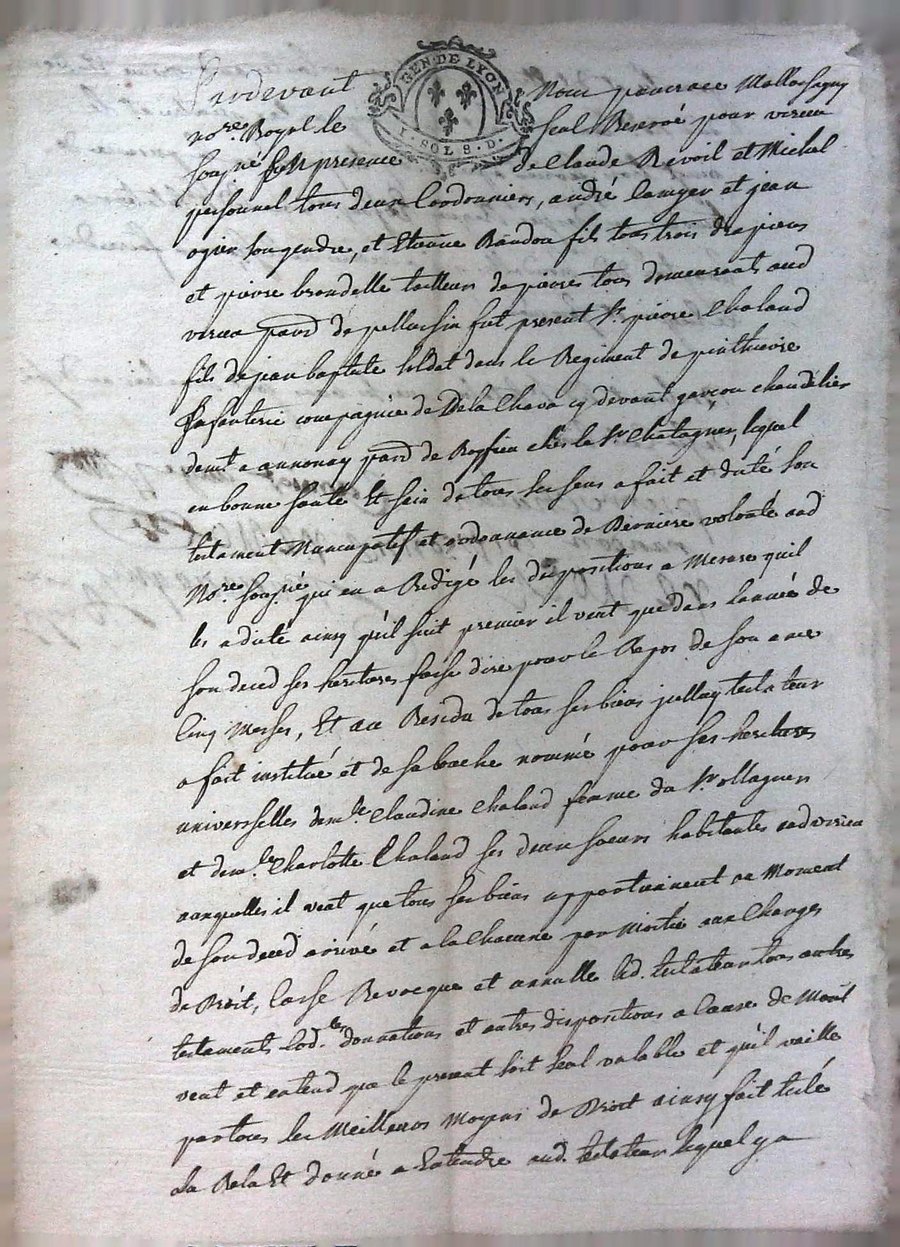 GEN DE LYON
I. SOL 8. D.
Pardevant Nous pancrace
no.re Royal le seul Reservé pour virieu
sousné En presence de Claude Revoil et Michel
personnal tous deux Cordonniers, andré et jean
ogier son gendre, et Etienne Randon fils tous trois drapiers
et pierre brondelle tailleurs de pierres tous demeurants aud
virieu paroi.sse de pellussin fut present Sr. pierre Chaland
fils de jean baptiste soldat dans le Regiment de pinthievre
Infanterie compagnie de Dela Chava cy devant garcon chandelier
demt a annonay de Boffieu ches le Sr. Chatagner, lequel
en bonne santé Et sain de tous ses sens a fait et dicté son
testament Nuncupatif et ordonnance de Derniere volonté aud
No.re sousné qui en a Redigé les dispositions a Mesure quil
les a dicté ainsy qu'il suit premier il veut que dans lannée de
son deced ses heritieres fasse dire pour le Repos de son ame
Cinq Messes, Et au Residu de tous ses biens testateur
a fait institué et de sa bouche nommé pour ses heritieres
universelles dem.lle Claudine Chaland femme du Sr. ollagnier
et dem.lle Charlotte Chaland ses deux soeurs habitantes aud virieu
auxquelles il veut que tous ses biens appartiennent au Moment
de son deced arrivé et a la Chacune par Moitié aux Charges
de Droit, Casse Revocque et annulle led. testateur tous autres
testaments Cod.les donnations et autres dispositions a Cause de Mort
veut et entend que le present soit seul valable et qu'il vaille
par tous les Meilleurs Moyens de Droit ainsy fait
La Rela Et donné a Entendre aud. testateur lequel y a